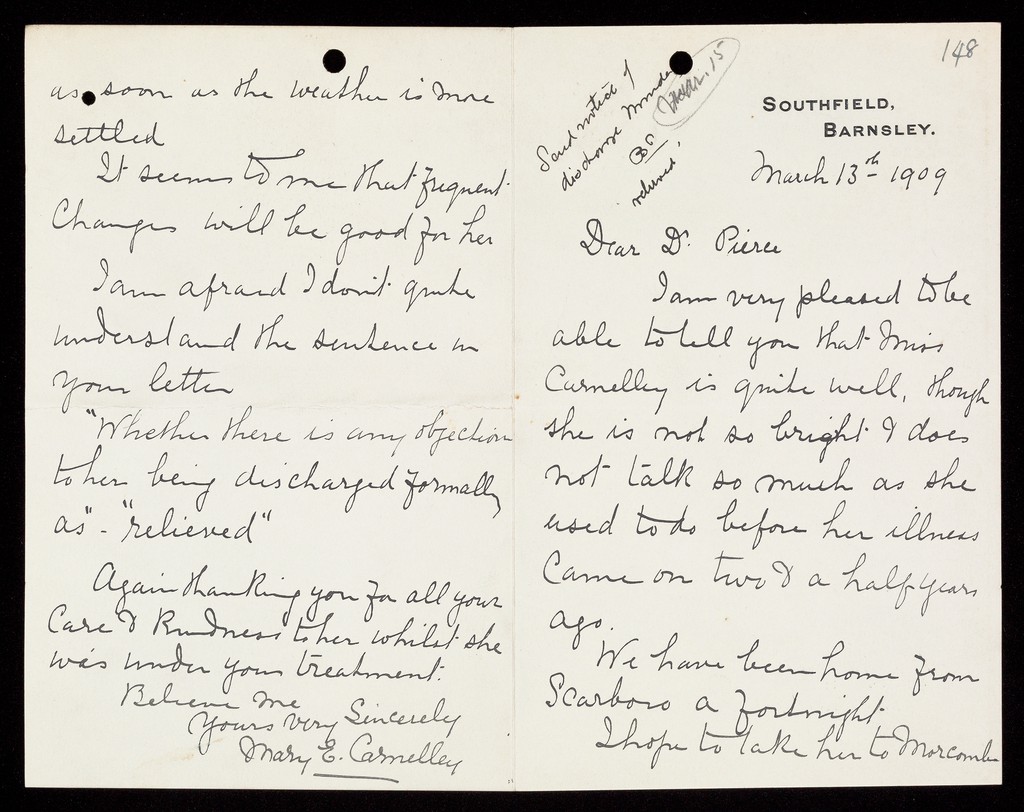 148
Send notice of
discharge Monday
Mar. 15
BP
relieved.
SOUTHFIELD,
BARNSLEY.
March 13th 1909
Dear Dr. Pierce
I am very pleased to be
able to tell you that Miss
Carnelley is quite well, though
she is not so bright & does
not talk so much as she
used to do before her illness
came on two & a half years
ago.
We have been home from
Scarboro a fortnight.
I hope to take her to Morcombe
as soon as the weather is more
settled
It seems to me that frequent
changes will be good for her
I am afraid I don't quite
understand the sentence in
your letter
"Whether there is any objection
to her being discharged formally
as" - "relieved"
Again thanking you for all your
care & kindness to her whilst she
was under your treatment.
Believe me
Yours very Sincerely
Mary E. Carnelley